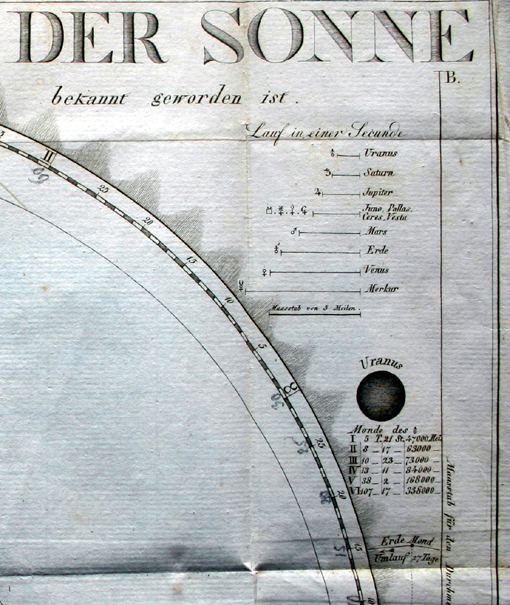 DER SONNE
B.
bekannt geworden ist.
Lauf in einer Secunde
Uranus
Saturn
Jupiter
Juno, Pallas,
Ceres, Vesta
Mars
Erde
Venus
Merkur
Maasstab von 5 Meilen.
II
25
20
15
10
5
25
20
15
Uranus
Monde des ♅
I 5 T. 21 St. 47000 Mei.
II 8 — 17 — 63000 —
III 10 — 23 — 73000 —
IV 13 — 11 — 84000 —
V 38 — 2 — 168000 —
VI 107 — 17 — 338000 —
Erde Mond
Umlauf 27 Tage
Maasstab für den